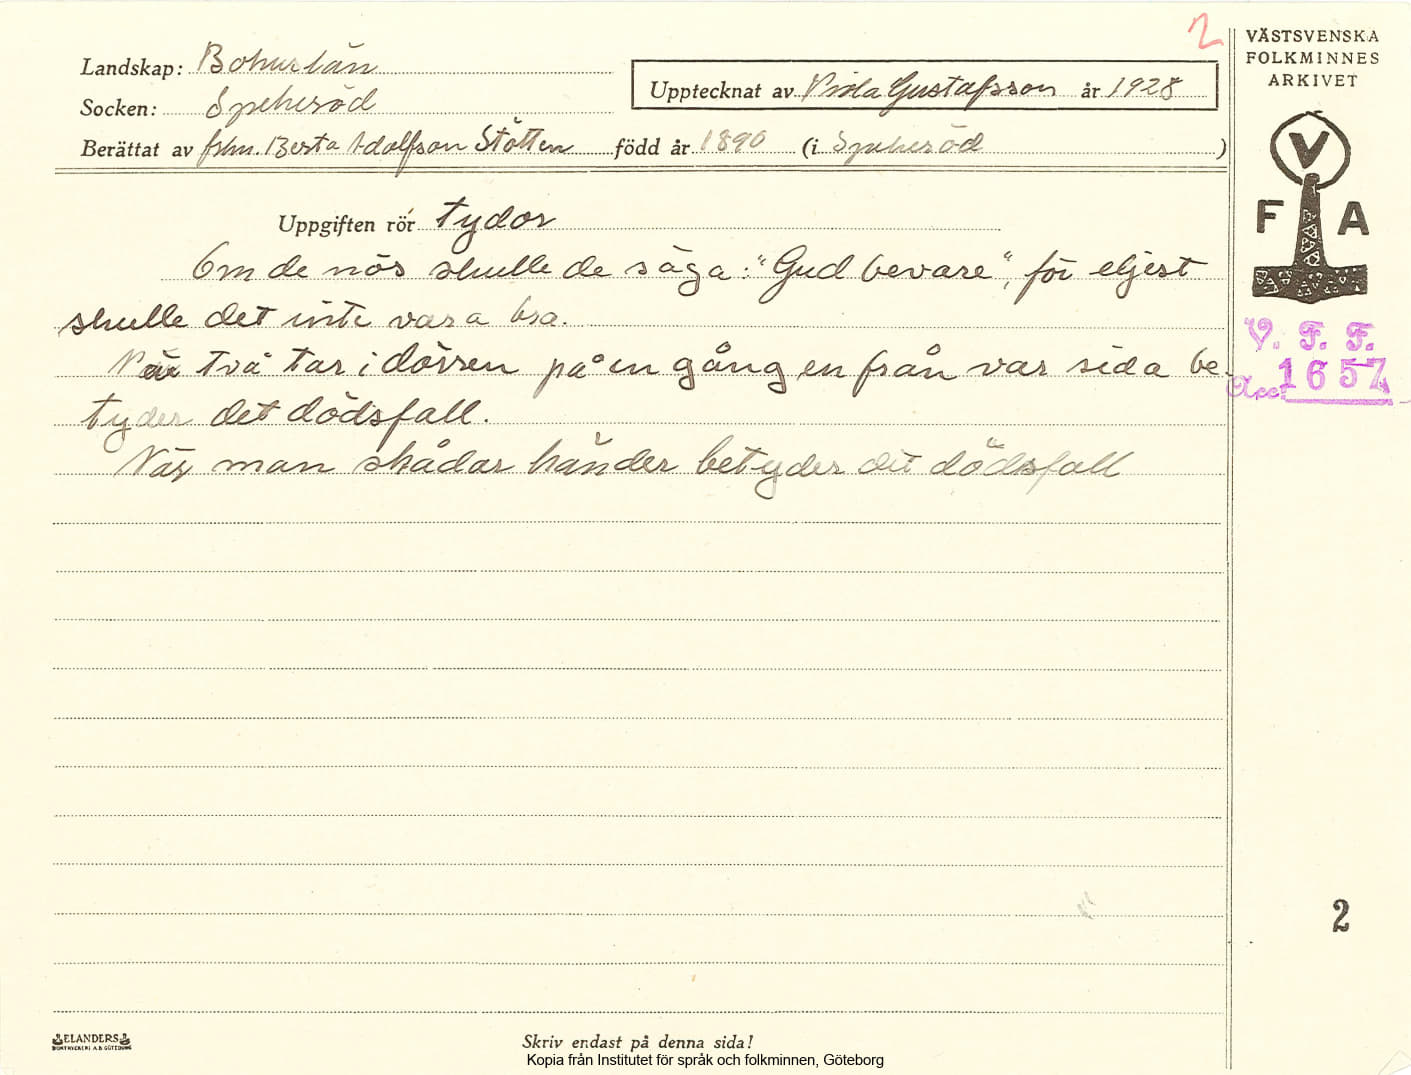 2
VÄSTSVENSKA
FOLKMINNES
ARKIVET
Landskap: Bohuslän
Socken: Spekeröd
Upptecknat av Viola Gustafsson år 1928
Berättat av fru. Berta Adolfson Stötten född år 1890 (i Spekeröd)
V
F A
Uppgiften rör tydor
Om de nös skulle de säga: "Gud bevare", för eljest
skulle det inte vara bra.
När två tar i dörren på en gång en från var sida be-
tyder det dödsfall.
När man skådar händer betyder det dödsfall
V. F. F.
Acc. 1657
2
ELANDERS
BOKTRYCKERI A.B. GÖTEBORG
Skriv endast på denna sida!
Kopia från Institutet för språk och folkminnen, Göteborg